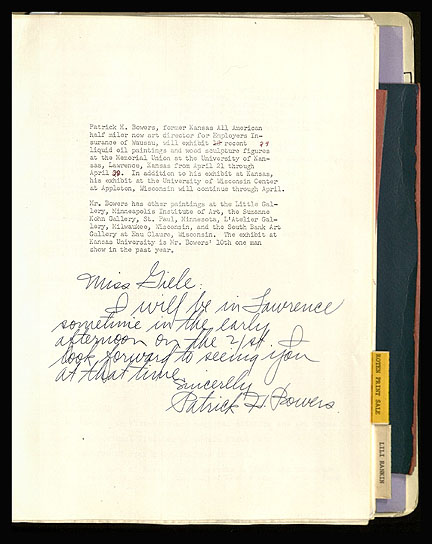 Patrick H. Bowers, former Kansas All American
half miler now art director for Employers In-
surance of Wausau, will exhibit recent 29
liquid oil paintings and wood sculpture figures
at the Memorial Union at the University of Kan-
sas, Lawrence, Kansas from April 21 through
April In addition to his exhibit at Kansas,
his exhibit at the University of Wisconsin Center
at Appleton, Wisconsin will continue through April.
Mr. Bowers has other paintings at the Little Gal-
lery, Minneapolis Institute of Art, the Suzanne
Kohn Gallery, St. Paul, Minnesota, L'Atelier Gal-
lery, Milwaukee, Wisconsin, and the South Bank Art
Gallery at Eau Claure, Wisconsin. The exhibit at
Kansas University is Mr. Bowers' 10th one man
show in the past year.
Miss Giele:
I will be in Lawrence
sometime in the early
afternoon on the 21st. I
look forward to seeing you
at that time.
Sincerlly
Patrick H. Bowers.
ROTEN PRINT SALE
LILI RANKIN